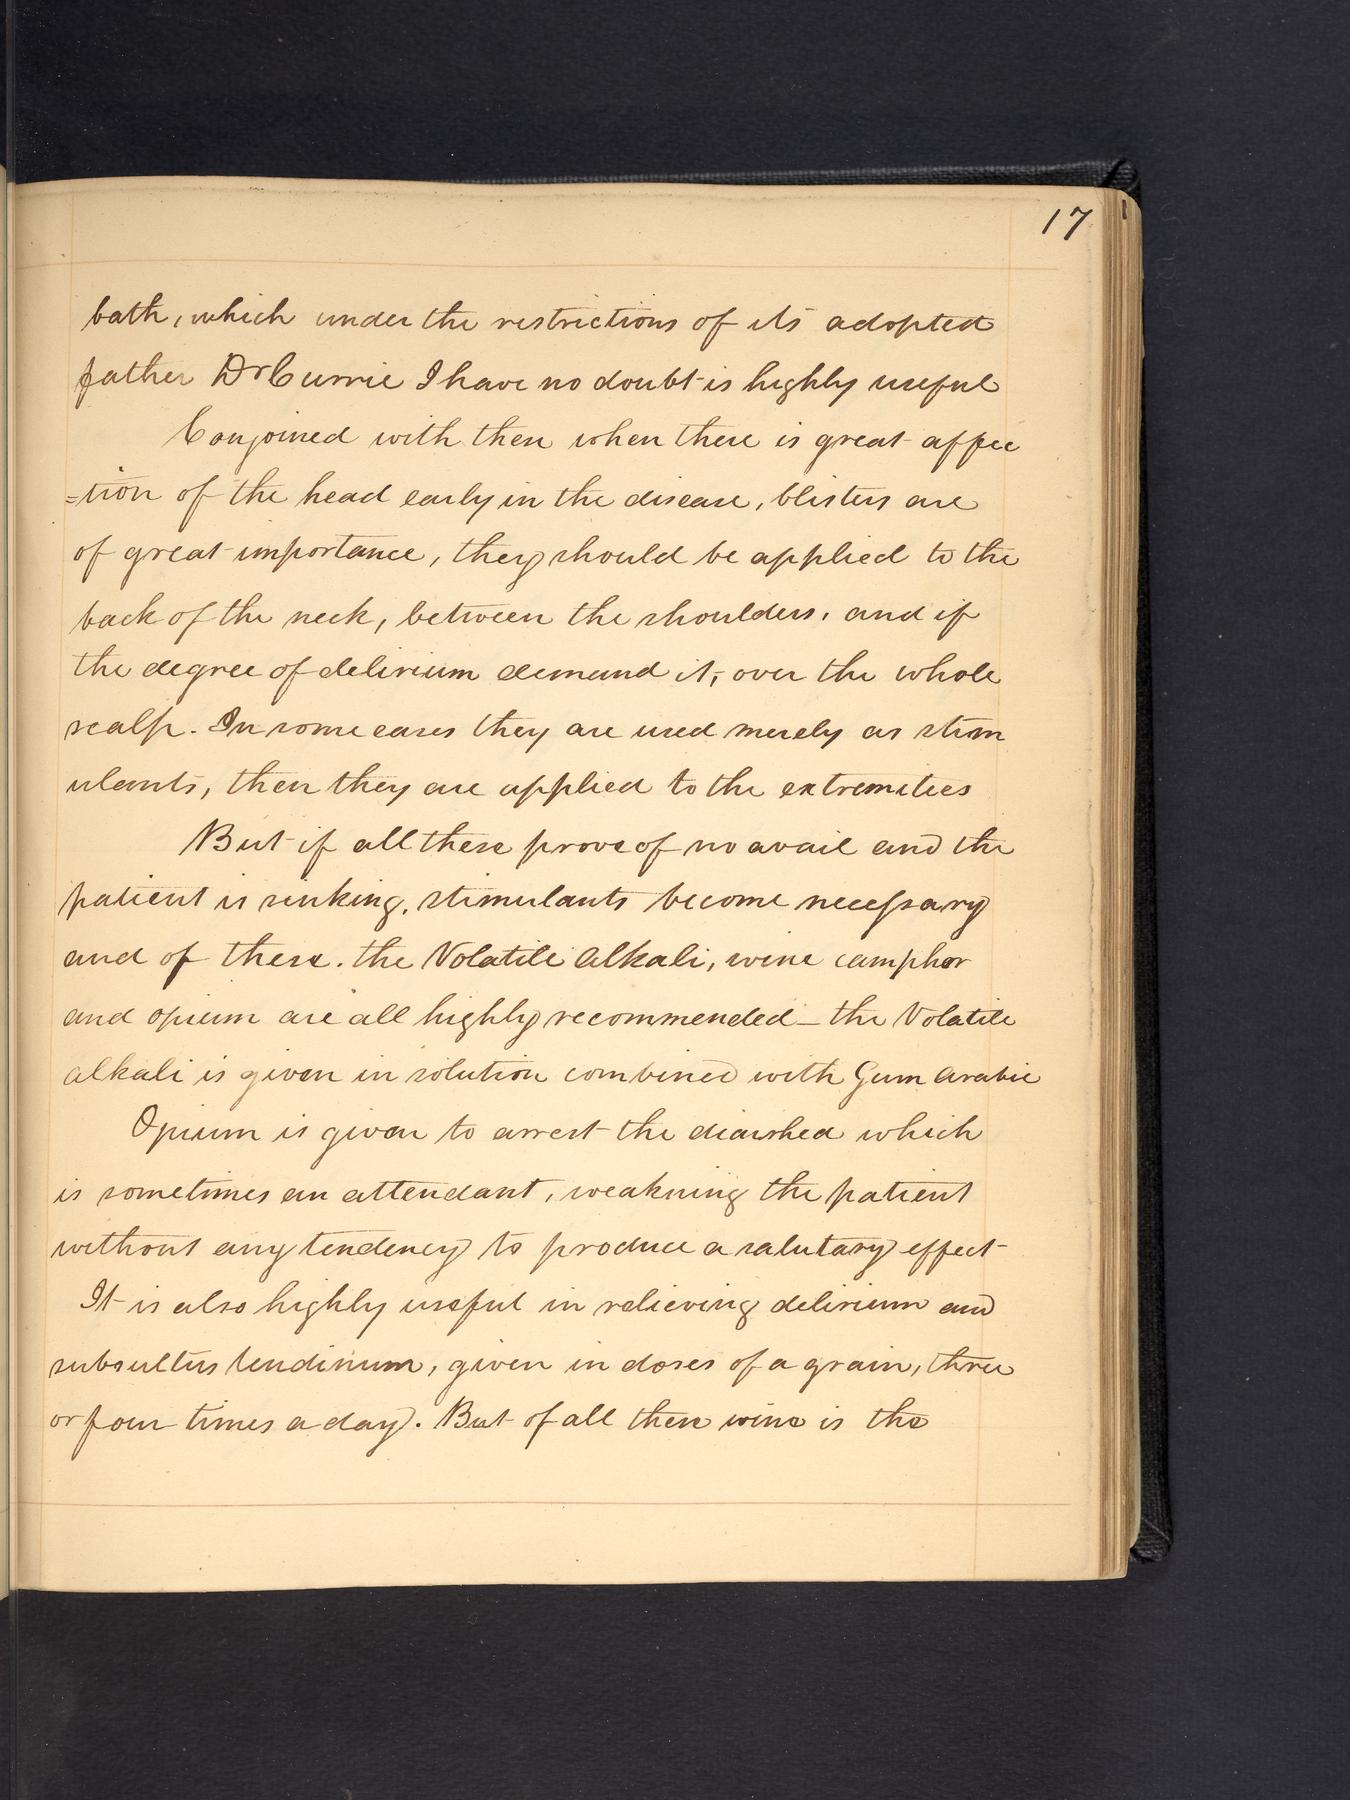 17
bath, which under the restrictions of its adopted
father Dr Currie I have no doubt is highly useful
Conjoined with then when there is great affec
=tion of the head early in the disease, blisters are
of great importance, they should be applied to the
back of the neck, between the shoulders, and if
the degree of delirium demand it, over the whole
scalp. In some cases they are used merely as stim
ulants, then they are applied to the extremities
But if all these prove of no avail and the
patient is sinking, stimulants become necessary
and of these. the Volatile Alkali, wine camphor
and opium are all highly recommended – the Volatile
alkali is given in solution combined with Gum Arabic
Opium is given to arrest the diarrhea which
is sometimes an attendant, weakning the patient
without any tendency to produce a salutary effect
It is also highly useful in relieving delirium and
subsultus tendinum, given in doses of a grain, three
or four times a day. But of all these wine is the